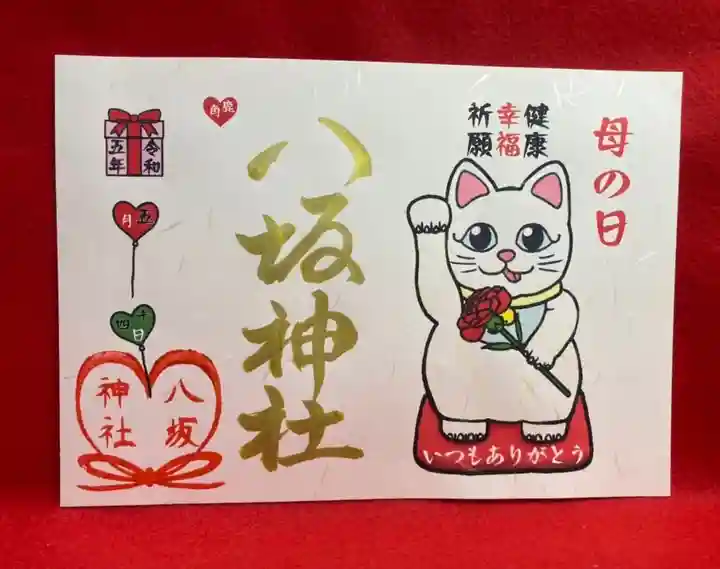 母の日
健康
幸福
祈願
いつもありがとう
八坂神社
鹿角
令和
五年
五月
十四日
八坂
神社